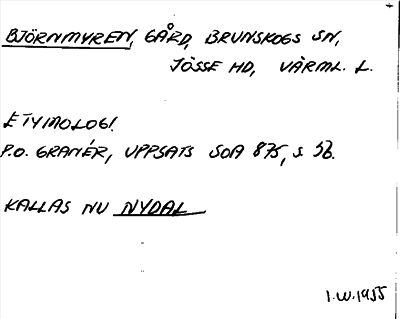 BJÖRNMYREN, GÅRD, BRUNSKOGS SN,
JÖSSE HD, VÄRML. L.
ETYMOLOGI.
P.O. GRANÉR, UPPSATS SOA 875, S. 56.
KALLAS NU NYDAL
I.W. 1955